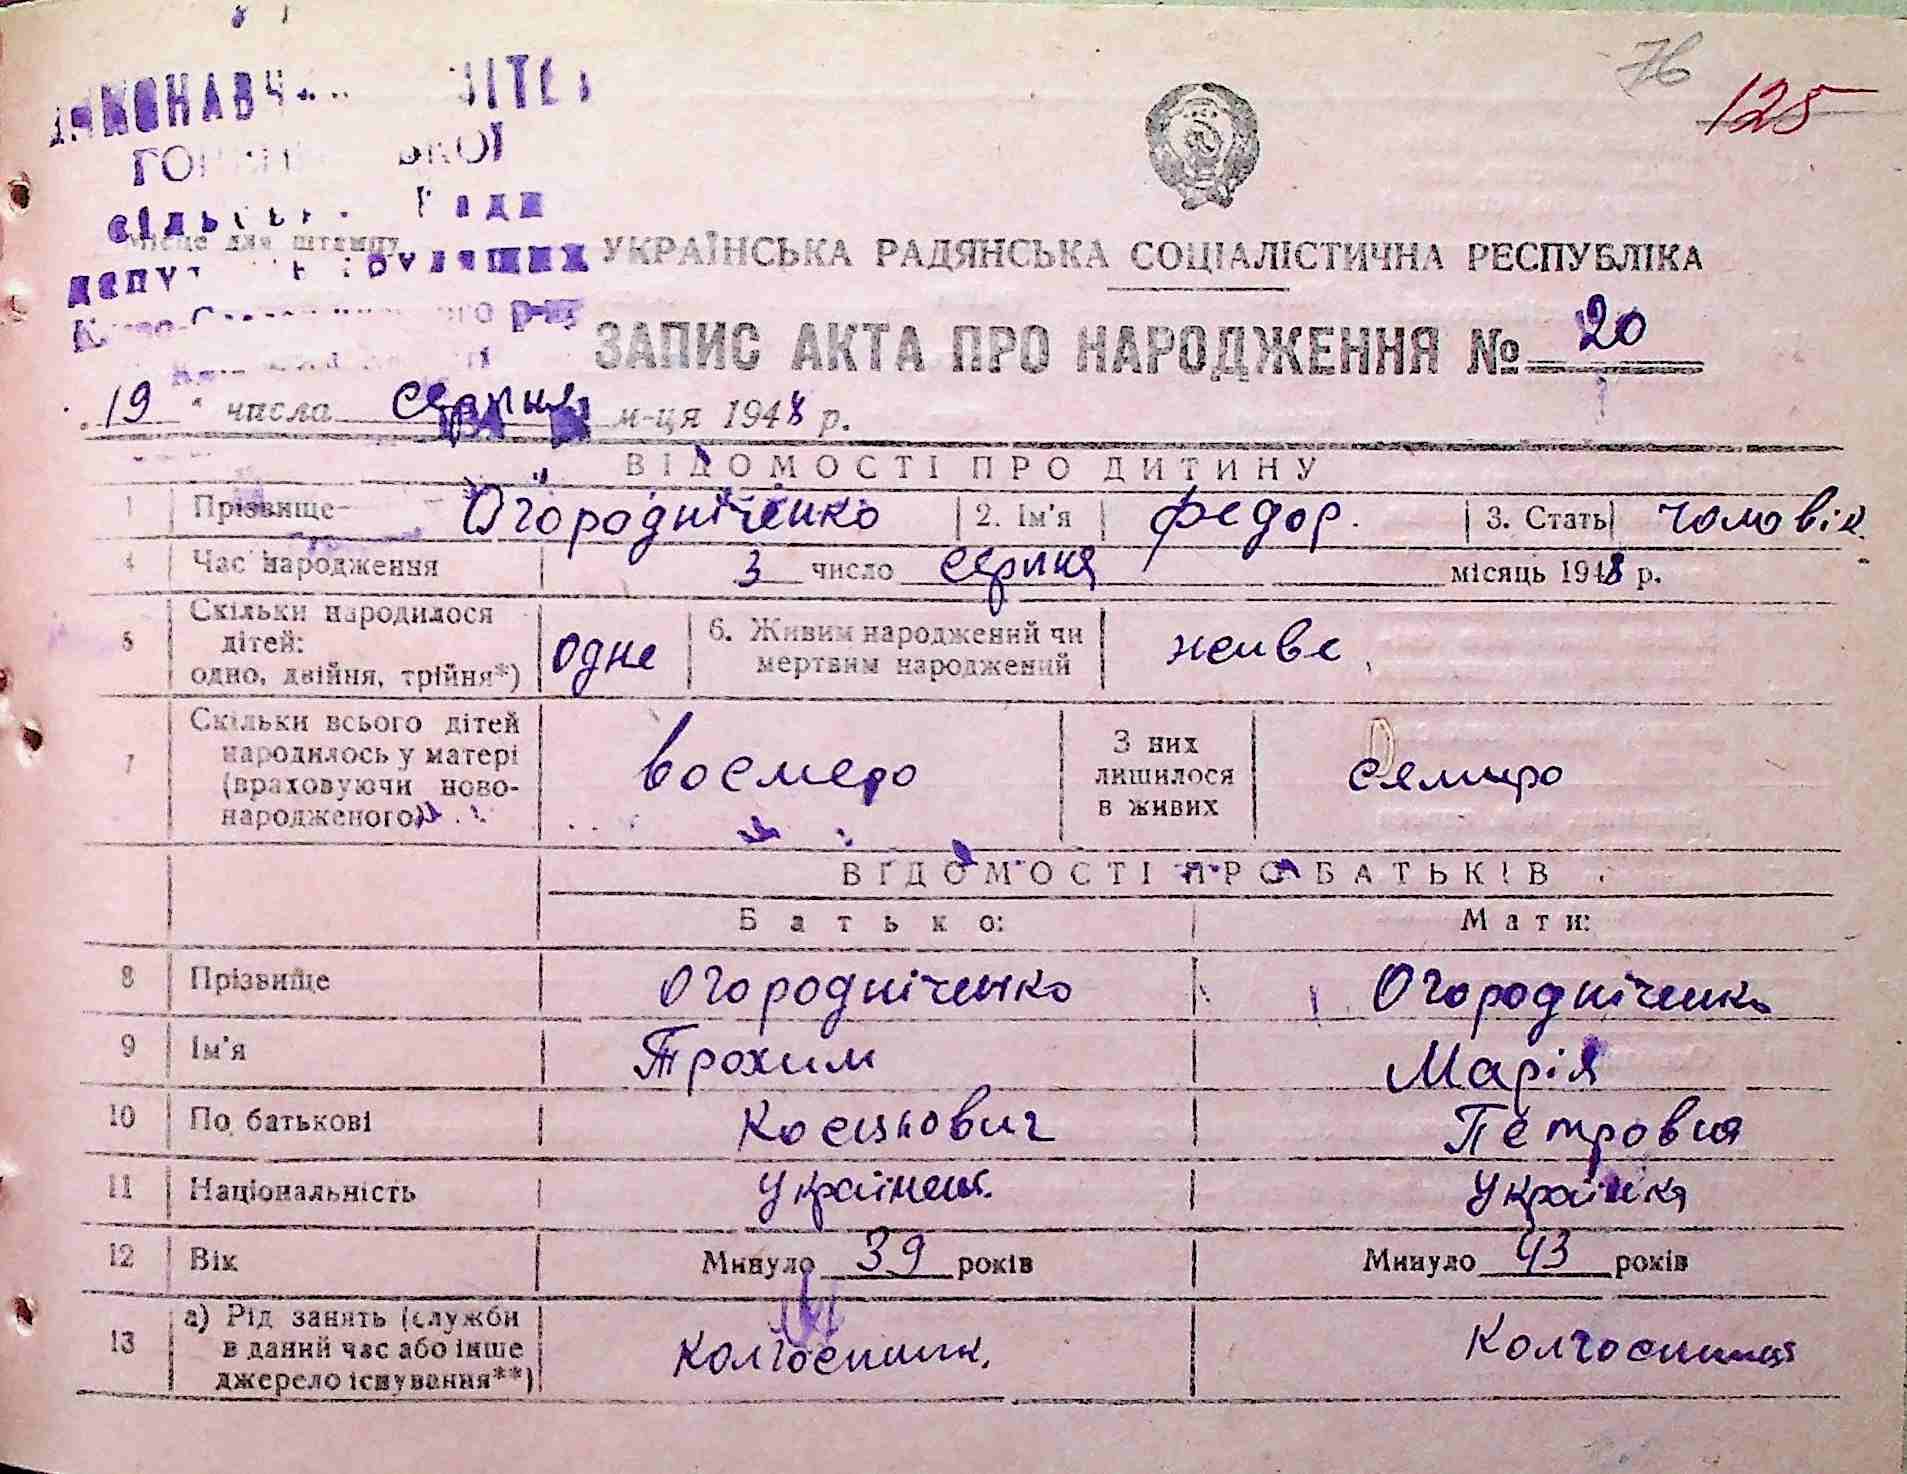 76
125
сільської Ради
депутатів трудящих
р-ну
Місце для штампу
УКРАЇНСЬКА РАДЯНСЬКА СОЦІАЛІСТИЧНА РЕСПУБЛІКА
ЗАПИС АКТА ПРО НАРОДЖЕННЯ № 20
19 числа серпня м-ця 1948 р.
ВІДОМОСТІ ПРО ДИТИНУ
1 Прізвище Огородніченко 2. Ім'я Федор. 3. Стать чоловік
4 Час народження 3 число серпня місяць 1948 р.
5 Скільки народилося дітей: одно, двійня, трійня*) одне 6. Живим народжений чи мертвим народжений живе
7 Скільки всього дітей народилось у матері (враховуючи новонародженого) восмеро З них лишилося в живих семиро
ВІДОМОСТІ ПРО БАТЬКІВ
Батько: Мати:
8 Прізвище Огородніченко Огородніченко
9 Ім'я Трохим Марія
10 По батькові Петровня
11 Національність Українець Українка
12 Вік Минуло 39 років Минуло 43 років
13 а) Рід занять (служби в даний час або інше джерело існування**) Колгоспник. Колгоспниця